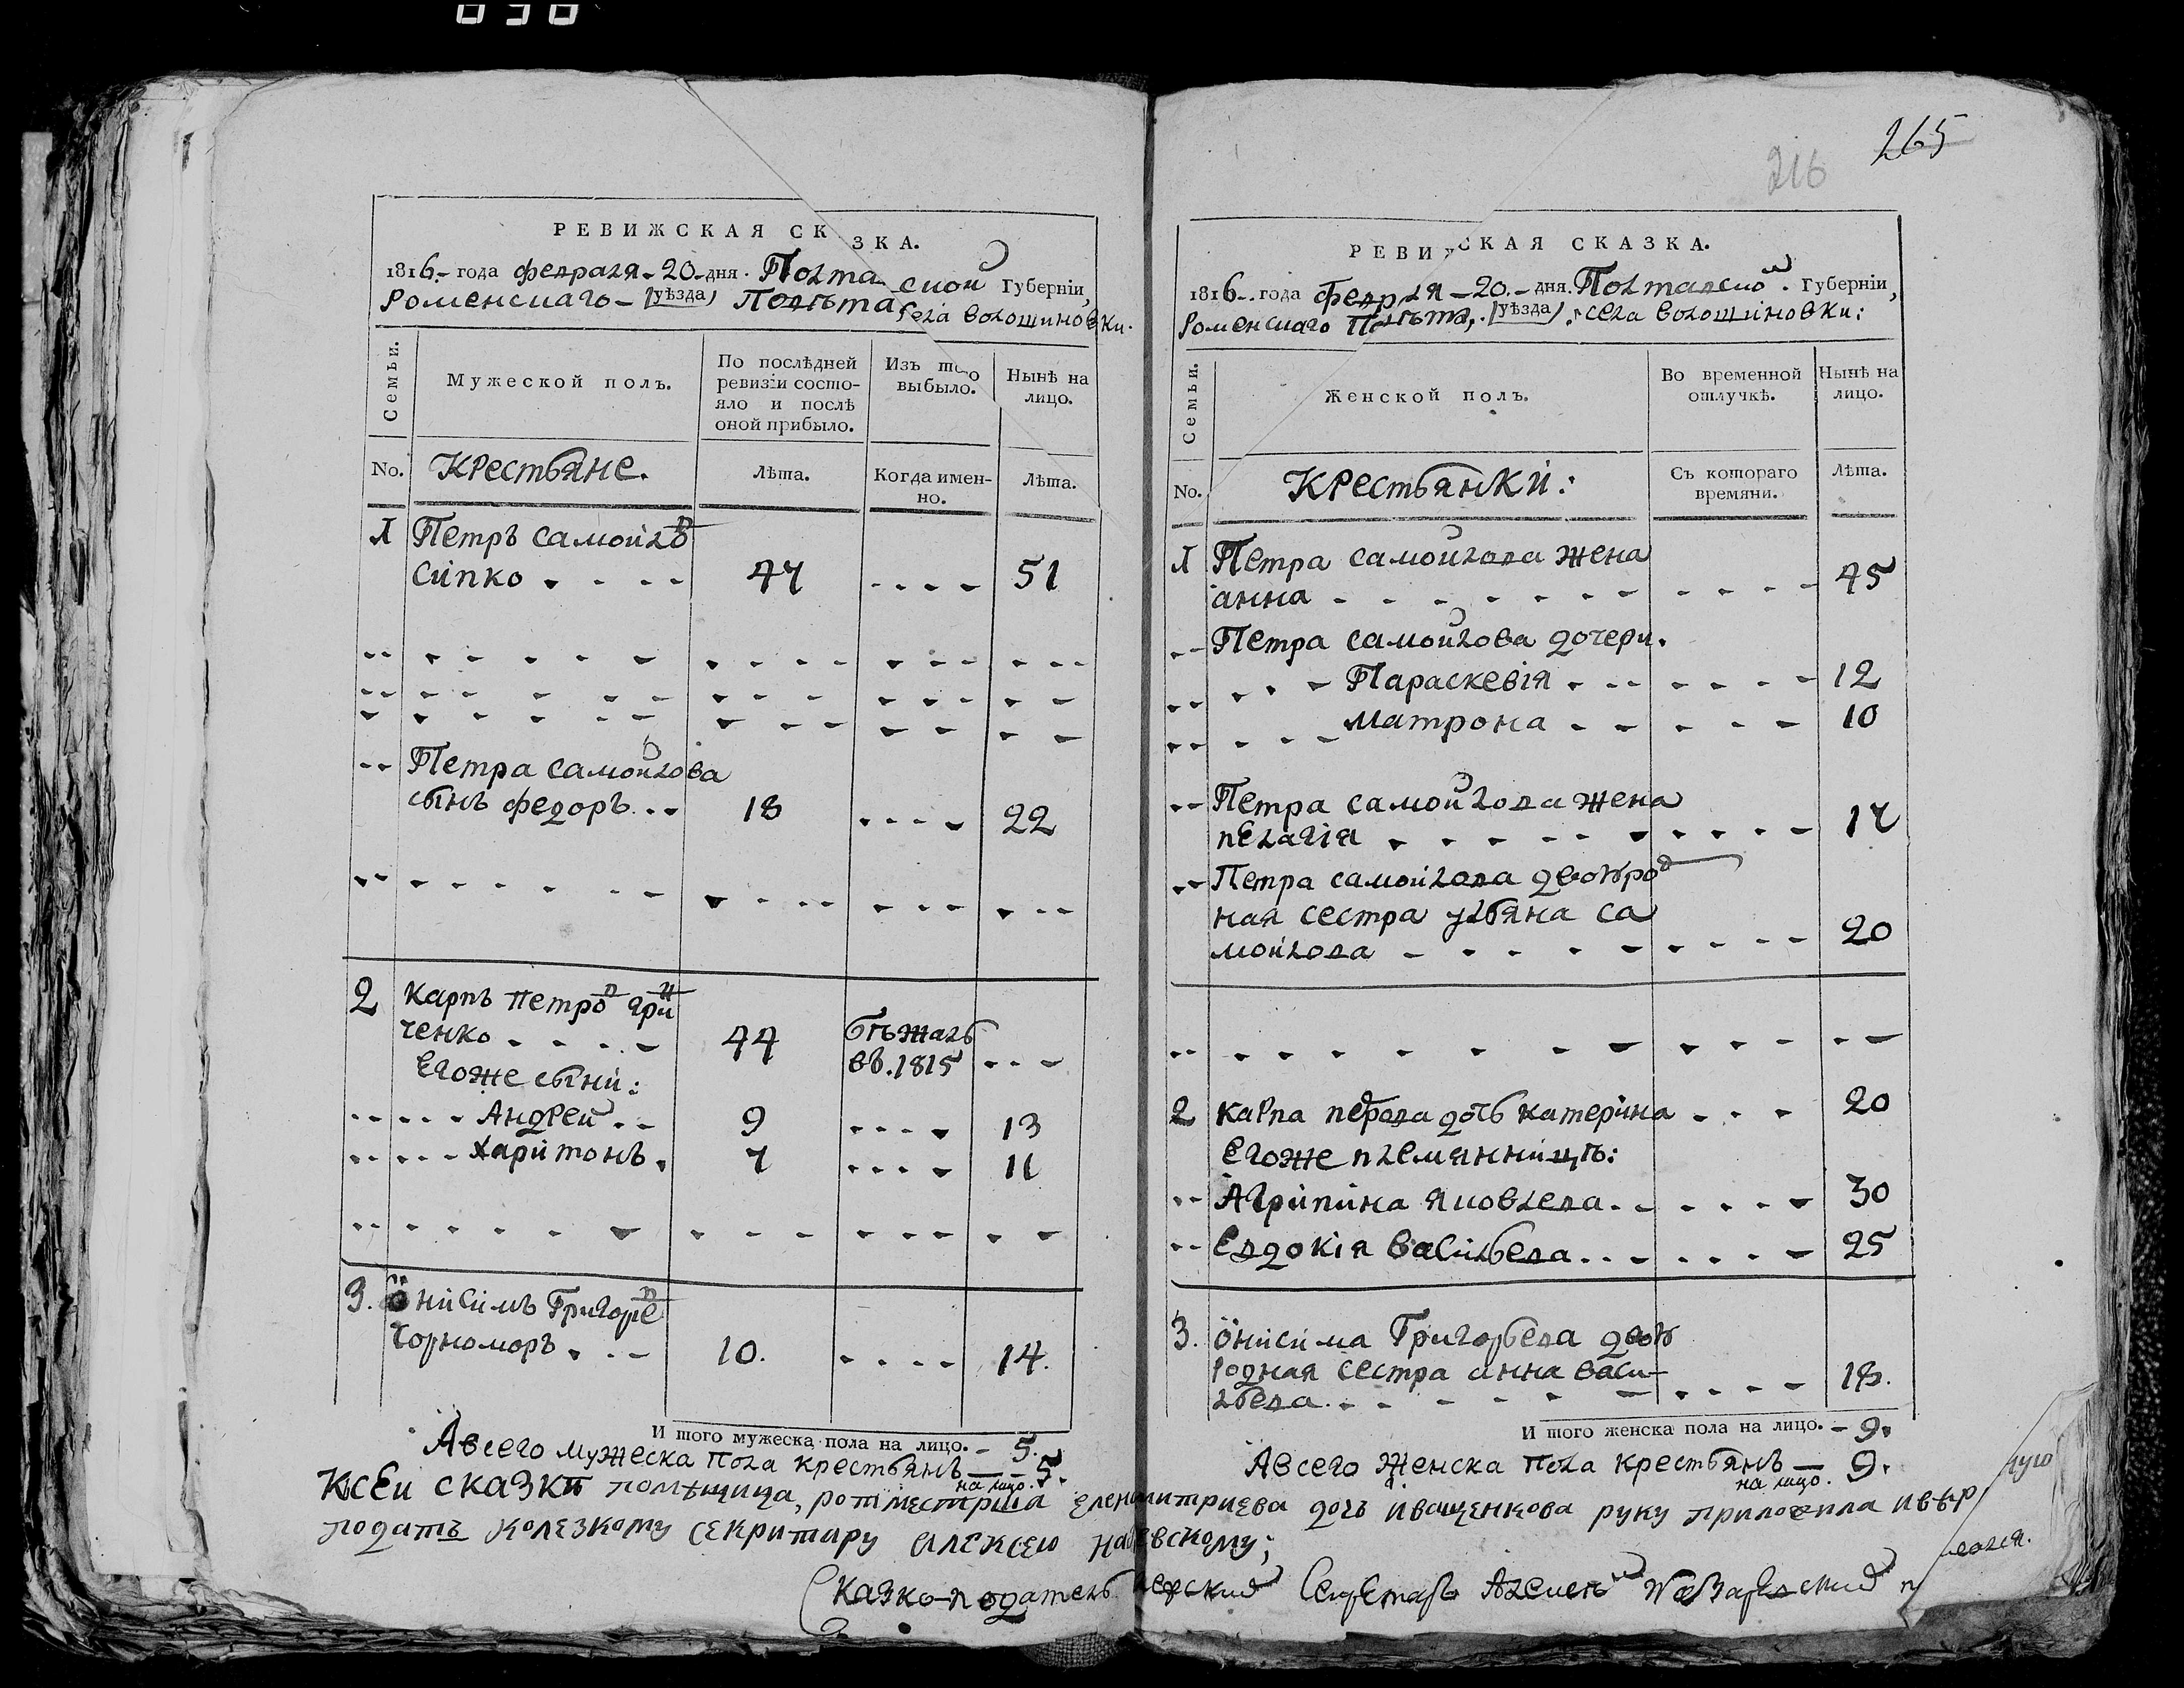 030
265
216
РЕВИЖСКАЯ СК ЗКА.
1816. года феврала 20 дня. Полта ской Губерніи,
Роменскаго (уѣзда) Повѣта села волошиновки.
Семьи.
Мужеской полъ.
По послѣдней ревизіи состо-
яло и послѣ
оной прибыло.
Изъ того
выбыло.
Нынѣ на
лицо.
No.
Крестьяне.
Лѣта.
Когда имен-
но.
Лѣта.
1 Петръ самойловъ
сипко 47 51
Петра самойлова
сынъ федоръ 18 22
2 Карпъ петровъ гри
ченко 44 бѣжалъ
въ 1815
Егоже сыни:
Андрей 9 13
Харитонъ 7 11
3. Онисимъ Григорьевъ
Чорноморъ 10. 14.
И того мужеска пола на лицо. 5.
А всего мужеска пола крестьянъ на лицо. 5.
РЕВИ СКАЯ СКАЗКА.
1816. года февраля 20. дня. Полтавской Губерніи,
Роменскаго Повѣта, (уѣзда) села волошиновки:
Семьи.
Женской полъ.
Во временной
отлучкѣ.
Нынѣ на
лицо.
No.
Крестьянки:
Съ котораго
времяни.
Лѣта.
1 Петра самойлова жена
анна 45
Петра самойлова дочери.
Параскевія 12
матрона 10
Петра самойлова жена
пелагія 17
Петра самойлова двоюрод
ная сестра ульяна са
мойлова 20
2 карпа петрова дочь катерина 20
Егоже племянницѣ:
Агрипина яковлева 30
Евдокія васильева 25
3. Онисима Григорьева двою
родная сестра анна васи-
льева 18.
И того женска пола на лицо. 9.
А всего женска пола крестьянъ на лицо. 9.
К сей сказки помѣщица, ротмистрша елена митриева дочь иващенкова руку приложила
подать колезкому секритару алексею
сказко-податель Секретарь Алексей